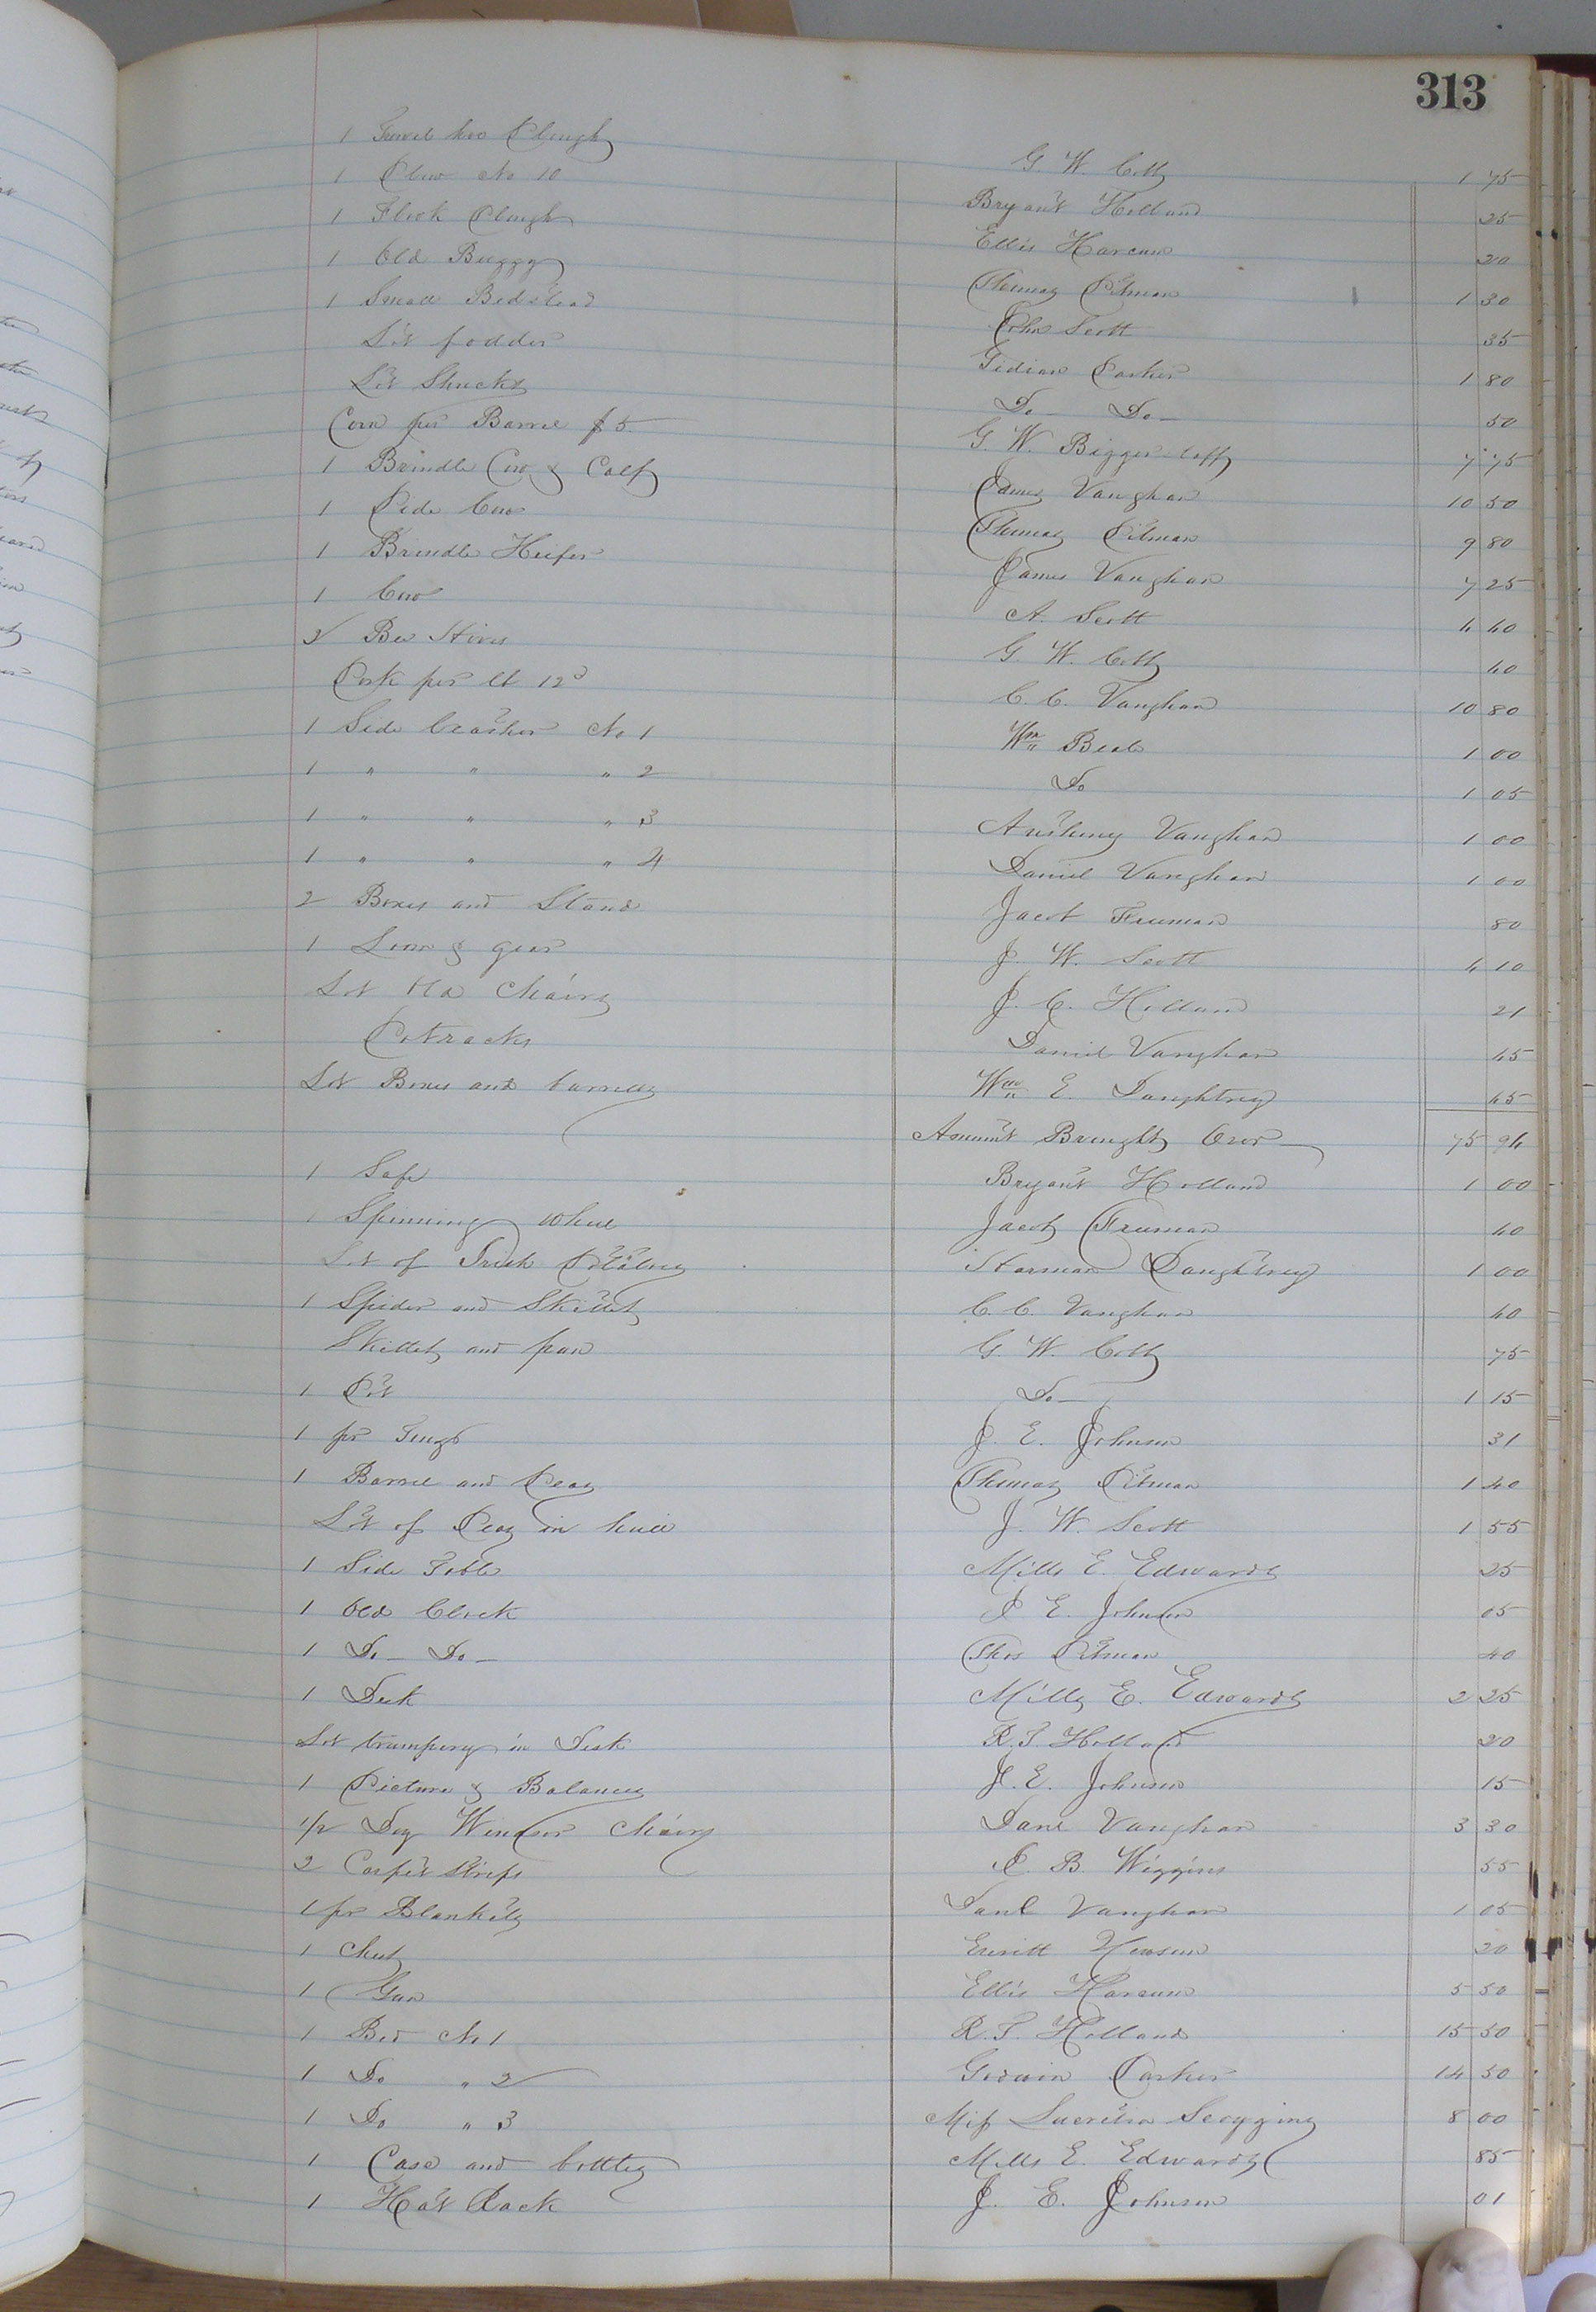 313
1 Trowel hoe Plough G. W. Cobb 1 75
1 Plow No 10 Bryant Holland 25
1 Flook Plough Ellis Harcum 20
1 Old Buggy Thomas Pitman 1 30
1 Small Bedstead John Scott 35
Lot fodder Gidion Parker 1 80
Lot Shucks Do Do 50
Corn per Barrel $5 G. W. 7 75
1 Brindle Cow & Calf James Vaughan 10 50
1 Pide Cow Thomas Pitman 9 80
1 Brindle Heifer James Vaughan 7 25
1 Cow A. Scott 4 40
2 Bee Hives G. W. Cobb 40
Pork per lb 12 C. C. Vaughan 10 80
1 Side Leather No 1 Wm Beale 1 00
1 " " " 2 Do 1 05
1 " " " 3 Anthony Vaughan 1 00
1 " " " 4 Daniel Vaughan 1 00
2 Boxes and Stand Jacob Freeman 80
1 Loom & gear J. W. Scott 4 10
Lot Old Chairs J. C. Holland 21
Potracks Daniel Vaughan 45
Lot Boxes and barrells Wm E. Daughtrey 45
Amount Brought Over 75 94
1 Safe Bryant Holland 1 00
1 Spinning Wheel Jacob Freeman 40
Lot of Irish Potatoes Harman Daughtrey 1 00
1 Spider and Skillet C. C. Vaughan 40
Skillet and pan G. W. Cobb 75
1 Pot Do 1 15
1 pr Tongs J. E. Johnson 31
1 Barrel and Peas Thomas Pitman 1 40
Lot of Peas in hull J. W. Scott 1 55
1 Side Table Mills E. Edwards 25
1 Old Clock J. E. Johnson 05
1 Do Do Thos Pitman 40
1 Desk Mills E. Edwards 2 25
Lot trumpery in Desk R. T. Holland 20
1 Picture & Balances J. E. Johnson 15
1/2 Doz Windsor Chairs Danl Vaughan 3 30
2 Carpet Strips B. Wiggins 55
1 pr Blankets Danl Vaughan 1 05
1 Chest Everitt Newsom 20
1 Gun Ellis Harcum 5 50
1 Bed No 1 R. T. Holland 15 50
1 Do " 2 Godwin Parker 14 50
1 Do " 3 Miss Lucretia Scoggins 8 00
1 Case and bottles Mills E. Edwards 85
1 Hat Rack J. E. Johnson 01